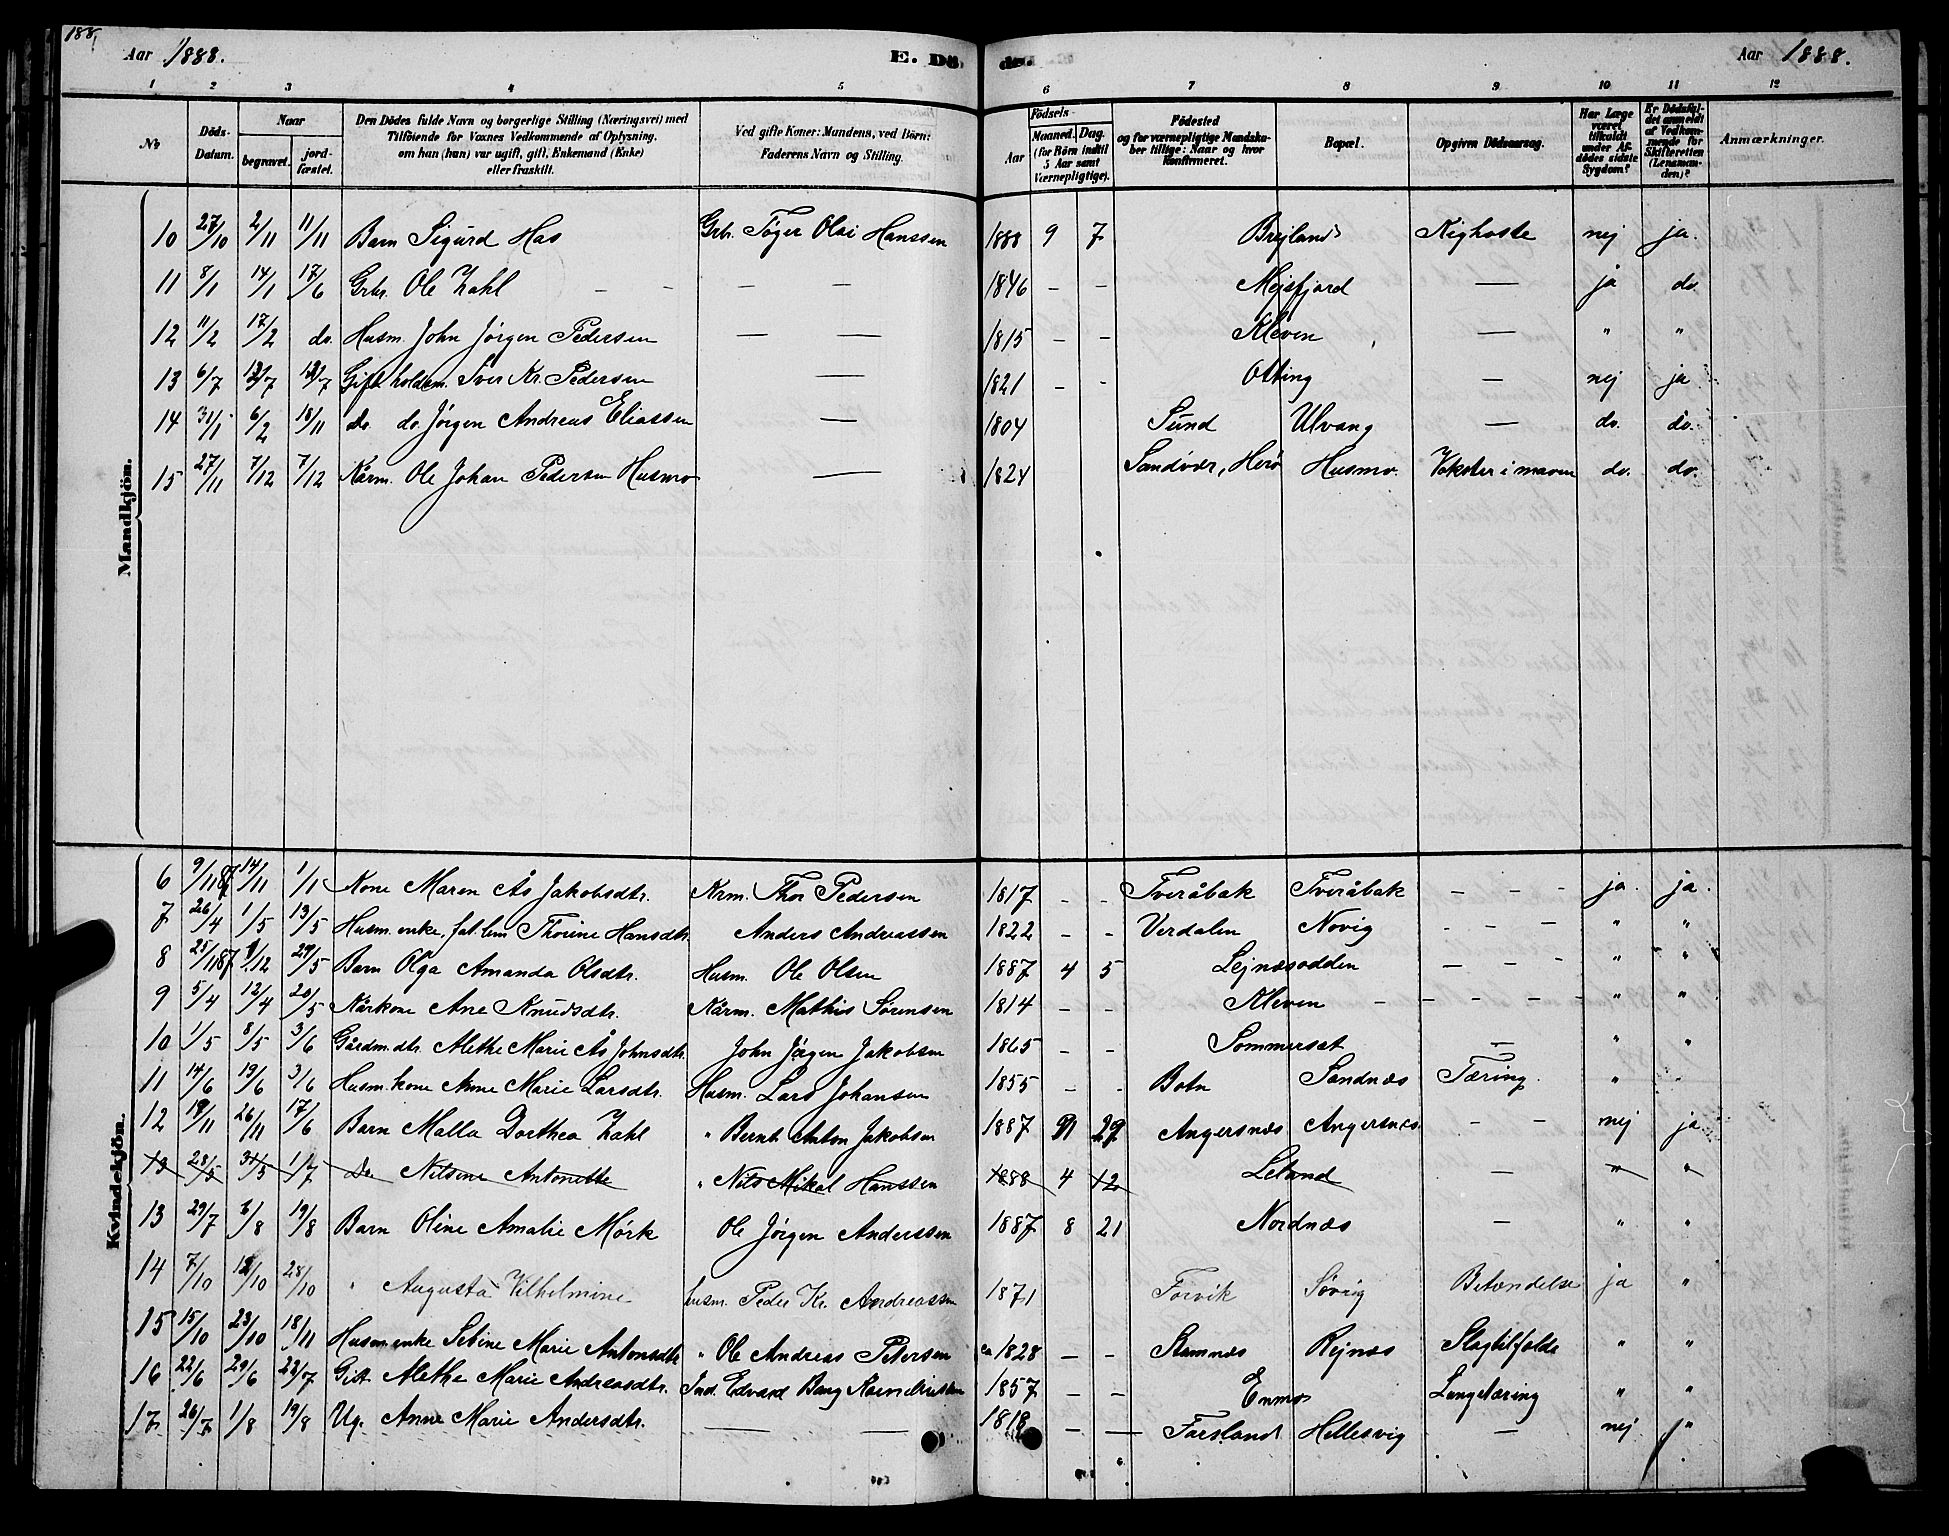 188,
Aar 1888. E. Dö- de. Aar 1888.
1 2 3 4 5 6 7 8 9 10 11 12
No
Döds-Datum.
Naar begravet. jord-fæstet.
Den Dödes fulde Navn og borgerlige Stilling (Næringsvei) med Tilföiende for Voxnes Vedkommende af Oplysning, om han (hun) var ugift, gift, Enkemand (Enke) eller fraskilt.
Ved gifte Koner: Mandens, ved Börn: Faderens Navn og Stilling.
Födsels- Aar Maaned. Dag. (for Börn indtil 5 Aar samt Værnepligtige).
Födested og for værnepligtige Mandskaber tillige: Naar og hvor Konfirmeret.
Bopæl.
Opgiven Dödsaarsag.
Har Læge været tilkaldt under Afdödes sidste Sygdom?
Er Dödsfaldet anmeldt af Vedkommende for Skifteretten (Lensmanden)?
Anmærkninger.
Mandkjön.
10 27/10 2/11 11/11 Barn Sigurd Has Grb. Tøger Olai Hanssen 1888 9 7 Brejland Kighoste nej ja.
11 8/1 14/1 17/6 Grbr. Ole Zahl - - - - 1846 - - Mejsfjord — ja do.
12 11/2 17/2 do. Husm. John Jørgen Pedersen — — 1815 - - Kleven — " "
13 6/7 12/7 12/7 Gift holdsm. Iver Kr. Pedersen — 1821 - - Olting — nej ja
14 31/1 6/2 18/11 do. do. Jørgen Andreas Eliassen — 1804 Sund Ulvang — do. do.
15 27/11 7/12 7/12 Kårm. Ole Johan Pedersen Husmo — 1824 Sandvær, Herø Husmo. Vekster i maven do. do.
Kvindekjön.
6 9/11 87 14/11 1/1 Kone Maren Ås Jakobsdtr. Krm. Thor Pedersen 1817 - - Tveråbak Tveråbak - - - ja. ja.
7 26/4 1/5 13/5 Husm. enke, fat. lem Thorine Hansdtr. Anders Andreassen 1822 - - Verdalen Novig - - - " "
8 25/11 87 9/12 29/5 Barn Olga Amanda Olsdtr. Husm. Ole Olsen 1887 4 5 Lejnæsodden - - - " "
9 5/4 12/4 20/5 Kårkone Ane Knudsdtr. Kårm. Mathis Sørensen 1814 - - Kleven - - - - " "
10 1/5 8/5 3/6 Gårdm. dtr. Alethe Marie Ås Johnsdtr. John Jørgen Jakobsen 1865 - - Sommerset — " "
11 14/6 19/6 3/6 Husm. kone Anne Marie Larsdtr. Husm. Lars Johansen 1855 - - Botn Sandnæs Tæring. "
12 19/11 26/11 17/6 Barn Malla Dorthea Zahl " Bernt Anton Jakobsen 1887 29 Angersnæs Angersnæs - - nej ja
13 28/5 31/5 1/7 Do Nilsine Antonette " Nils Mikal Hanssen 1888 4 12 Leland — " "
13 29/7 6/8 19/8 Barn Oline Amalie Mørk Ole Jørgen Anderssen 1887 8 21 Nordnæs — " "
14 7/10 12/10 28/10 " Augusta Vilhelmine husm. Peder Kr. Andreassen 1871 Forvik Søvig Betændelse ja "
15 15/10 23/10 18/11 Husm enke Sebine Marie Antonsdtr " Ole Andreas Petersen ca 1828 - - Stamnæs Rejnæs Slagtilfælde " "
16 22/6 29/6 22/7 Gift Alethe Marie Andreasdtr. Ind. Edvard Bang 1857 - - Enmo Lungetæring " "
17 26/7 1/8 19/8 Ug. Anne Marie Andersdtr. — — 1818 - — Forsland Hellesvig — nej j"